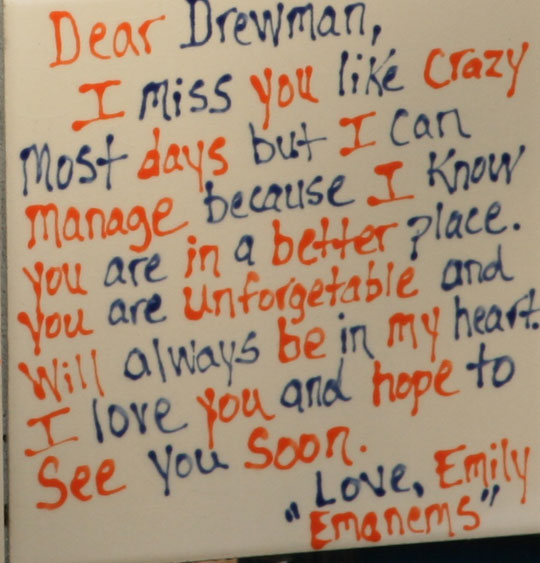 Dear Drewman,
I miss you like crazy
most days but I can
manage because I know
you are in a better place.
You are unforgetable and
will always be in my heart.
I love you and hope to
see you soon.
Love, Emily
"Emanems"